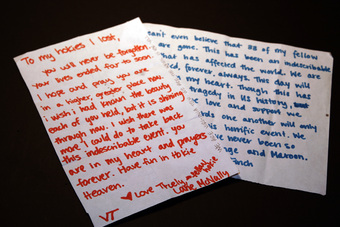 To my hokies I lost,
you will never be forgotten
your lives ended far to soon.
I hope and pray you are
in a higher, greater place now.
I wish I had known the beauty
each of you held, but it is shining
through now. I wish there was
more I could do to take back
this indescribable event. you
are in my heart and prayers
forever. Have fun in Hokie
Heaven.
♥ Love
Hokie
VT
can't even believe that 32 of my fellow
are gone. This has been an indescribable
that has affected the world. We are
forever, always. This day will
my heart. Though this has
tragedy in its history,
love and support we
one another will only
is horrific event. We
never been so
nge and Maroon.